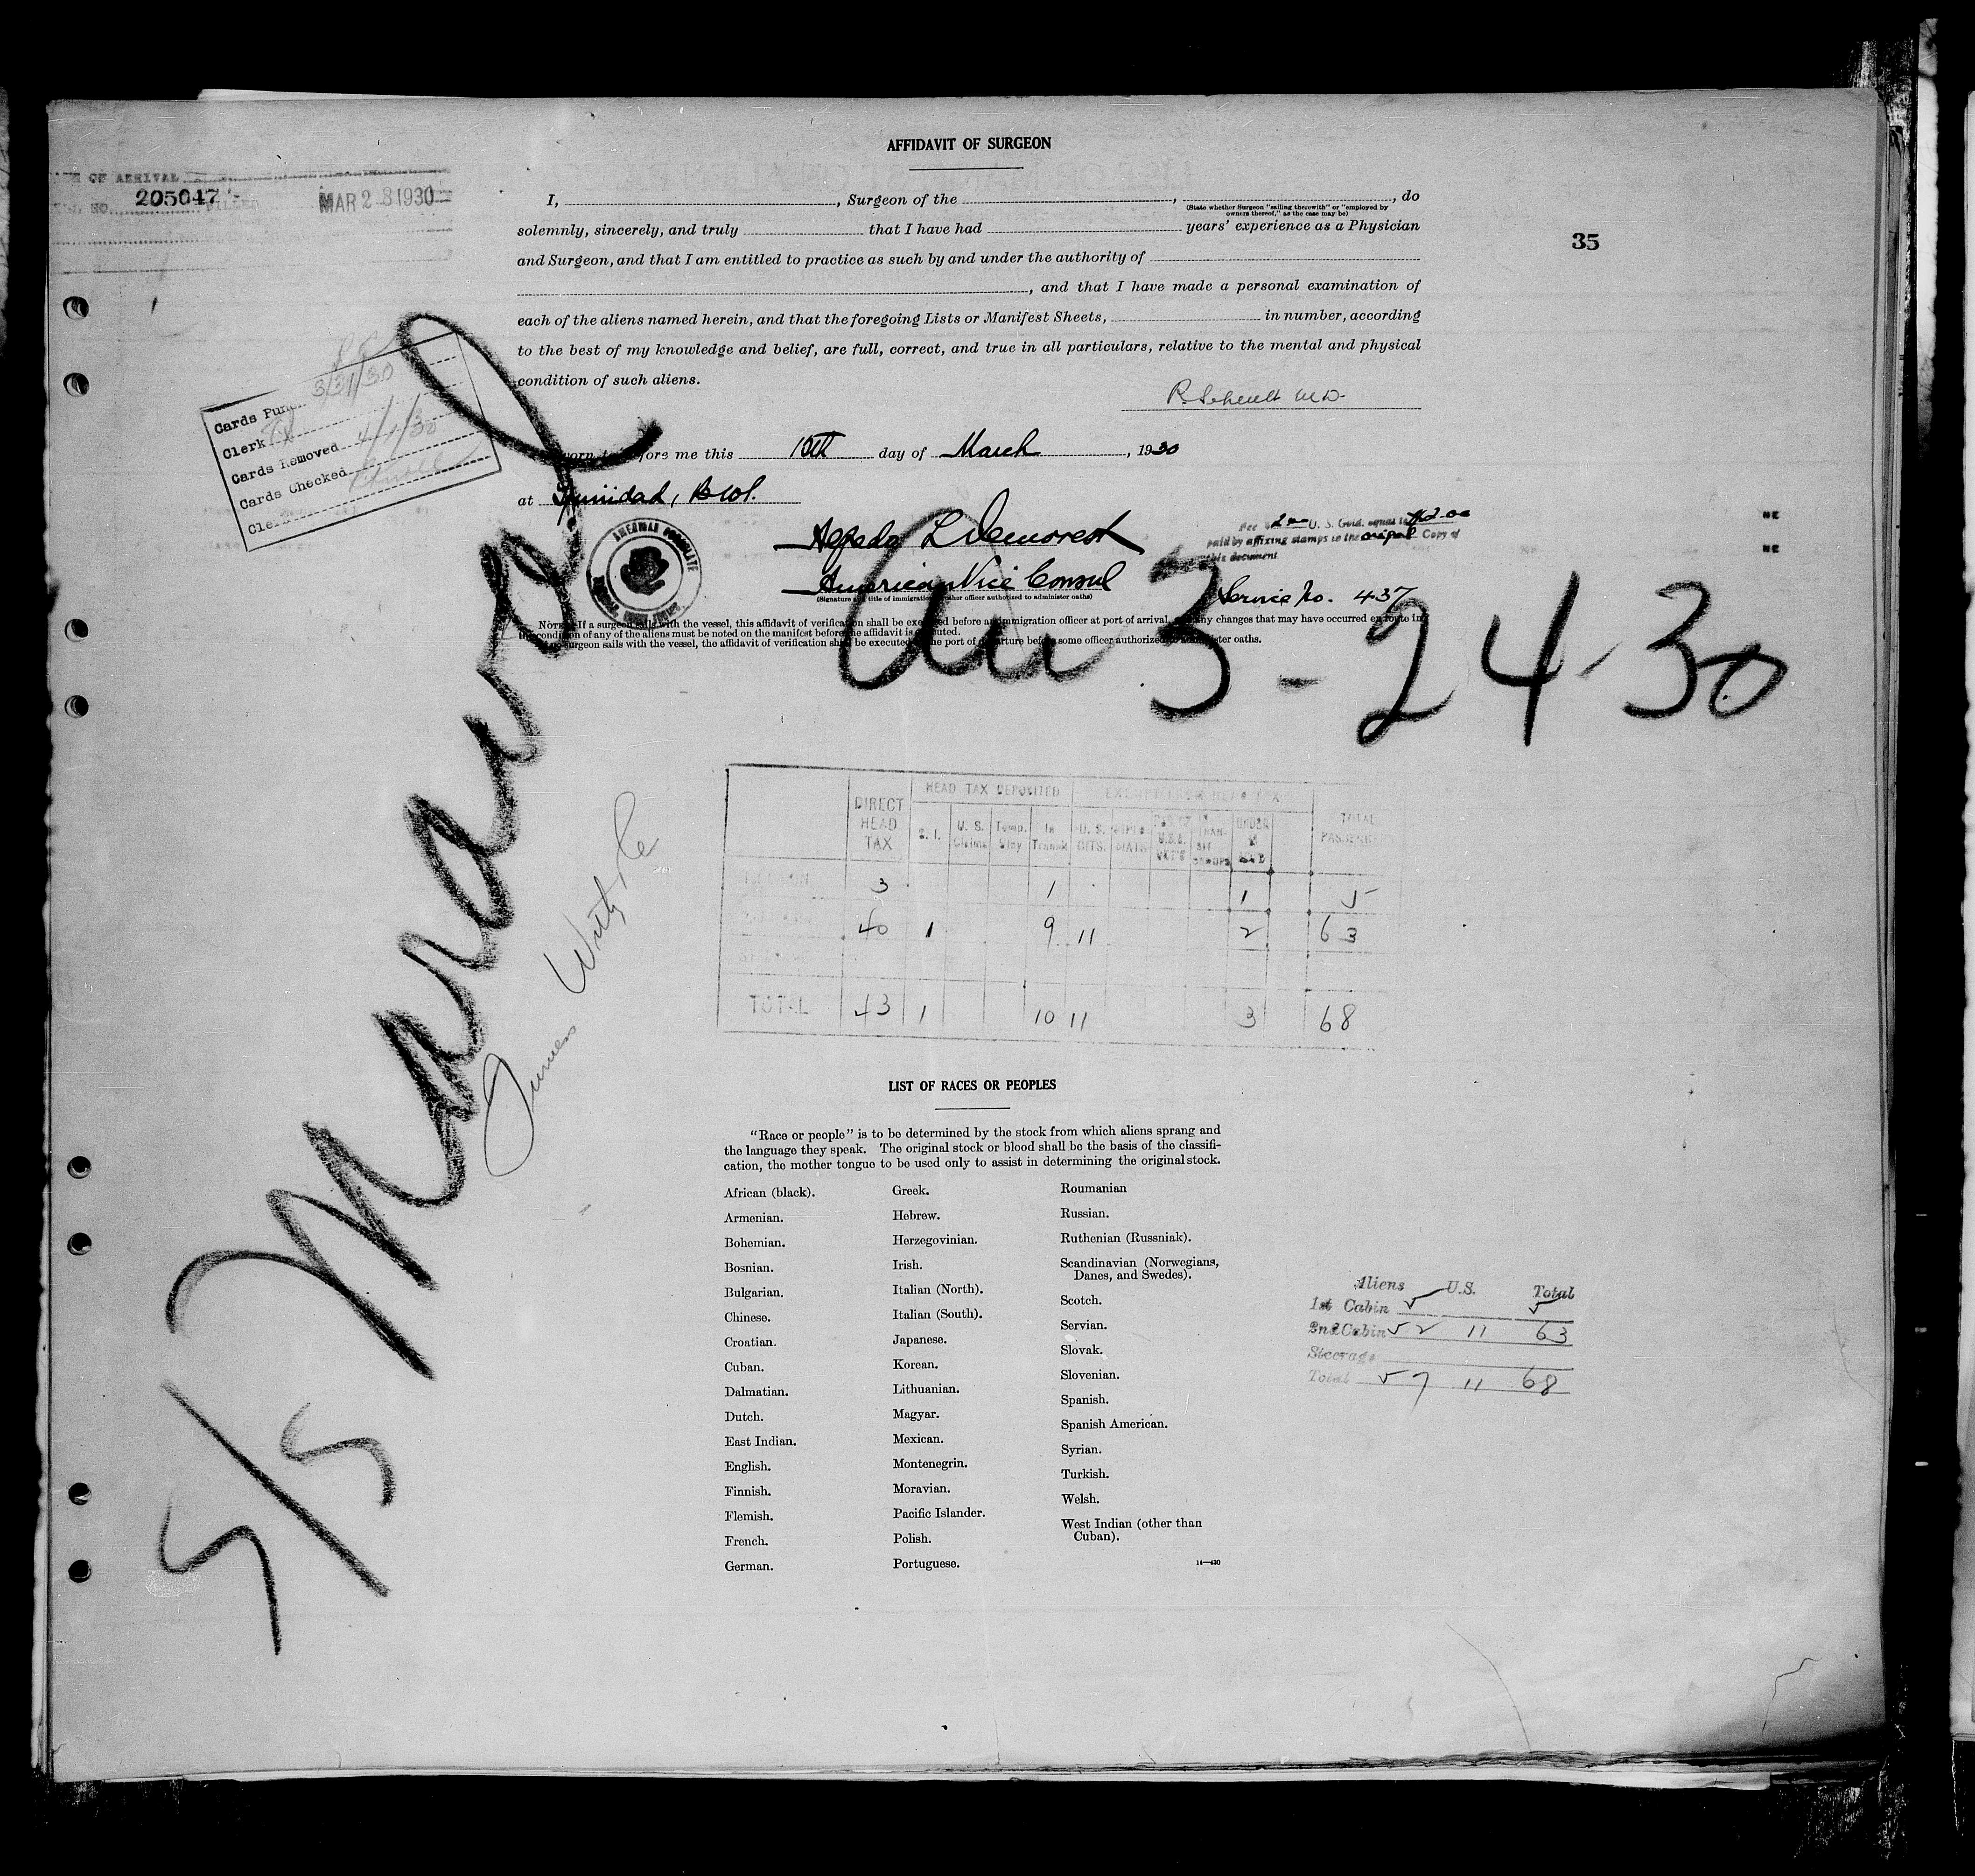 AFFIDAVIT OF SURGEON
OF ARRIVAL
205047
MAR 28 1930
35
I, , Surgeon of the , , do
(State whether Surgeon "sailing therewith" or "employed by
owners thereof," as the case may be)
solemnly, sincerely, and truly that I have had years' experience as a Physician
and Surgeon, and that I am entitled to practice as such by and under the authority of
, and that I have made a personal examination of
each of the aliens named herein, and that the foregoing Lists or Manifest Sheets, in number, according
to the best of my knowledge and belief, are full, correct, and true in all particulars, relative to the mental and physical
condition of such aliens.
Cards 3/31/30
Clerk
Cards Removed 4/1/30
Cards Checked
M.D.
before me this 10th day of March, 1930
at Trinidad, BWI.
AMERICAN CONSULATE
L Demorest
American Vice Consul
(Signature and title of immigration or other officer authorized to administer oaths)
Fee $2.00 U. S. Gold, equal to $2.00
paid by affixing stamps to the original Copy of
this document
Service No. 437
NOTE.—If a surgeon sails with the vessel, this affidavit of verification shall be executed before an immigration officer at port of arrival, any changes that may have occurred en route in
the condition of any of the aliens must be noted on the manifest before the affidavit is executed.
surgeon sails with the vessel, the affidavit of verification shall be executed the port of departure before some officer authorized to administer oaths.
S/S Maraval
3-24-30
Furness Withy Co
DIRECT HEAD TAX
HEAD TAX DEPOSITED
EXEMPT FROM HEAD TAX
TOTAL PASSENGERS
S. I. U. S. Claims Temp. Stay In Transit U. S. CITS. UNDER
3 1 1 5
40 1 9 11 2 63
TOTAL 43 1 10 11 3 68
LIST OF RACES OR PEOPLES
"Race or people" is to be determined by the stock from which aliens sprang and
the language they speak. The original stock or blood shall be the basis of the classifi-
cation, the mother tongue to be used only to assist in determining the original stock.
African (black).
Armenian.
Bohemian.
Bosnian.
Bulgarian.
Chinese.
Croatian.
Cuban.
Dalmatian.
Dutch.
East Indian.
English.
Finnish.
Flemish.
French.
German.
Greek.
Hebrew.
Herzegovinian.
Irish.
Italian (North).
Italian (South).
Japanese.
Korean.
Lithuanian.
Magyar.
Mexican.
Montenegrin.
Moravian.
Pacific Islander.
Polish.
Portuguese.
Roumanian
Russian.
Ruthenian (Russniak).
Scandinavian (Norwegians,
Danes, and Swedes).
Scotch.
Servian.
Slovak.
Slovenian.
Spanish.
Spanish American.
Syrian.
Turkish.
Welsh.
West Indian (other than
Cuban).
14—430
Aliens U.S. Total
1st Cabin 5 5
2nd Cabin 52 11 63
Steerage
Total 57 11 68